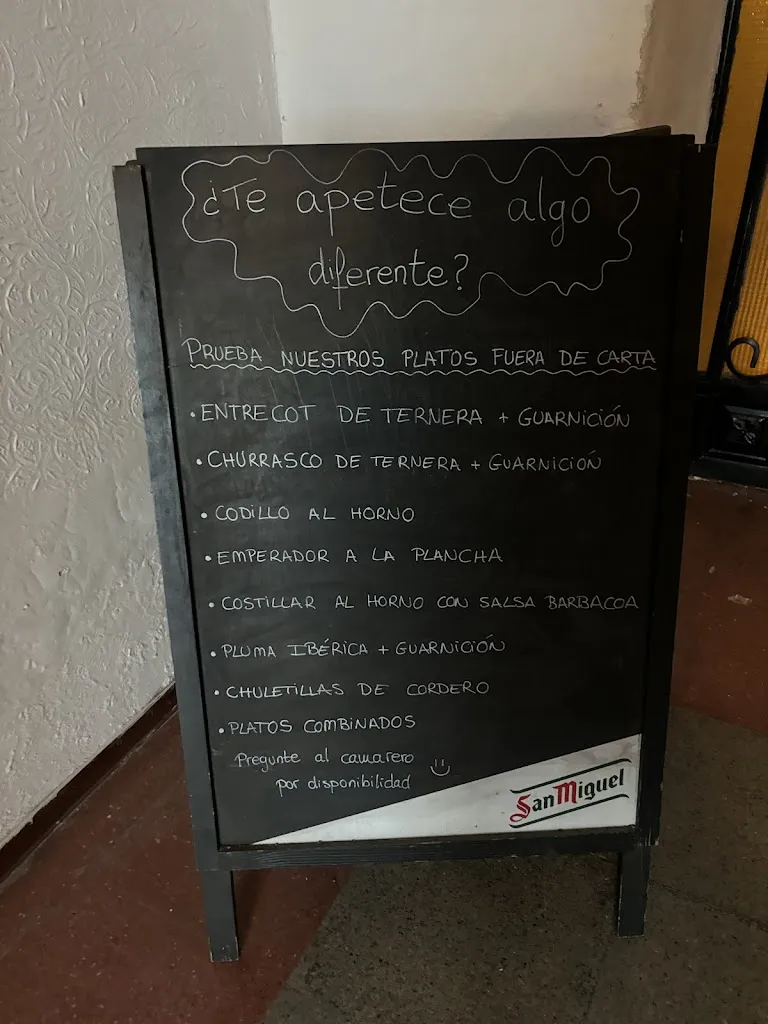 ¿Te apetece algo
diferente?
PRUEBA NUESTROS PLATOS FUERA DE CARTA
• ENTRECOT DE TERNERA + GUARNICIÓN
• CHURRASCO DE TERNERA + GUARNICIÓN
• CODILLO AL HORNO
• EMPERADOR A LA PLANCHA
• COSTILLAR AL HORNO CON SALSA BARBACOA
• PLUMA IBÉRICA + GUARNICIÓN
• CHULETILLAS DE CORDERO
• PLATOS COMBINADOS
Pregunte al camarero
por disponibilidad
San Miguel